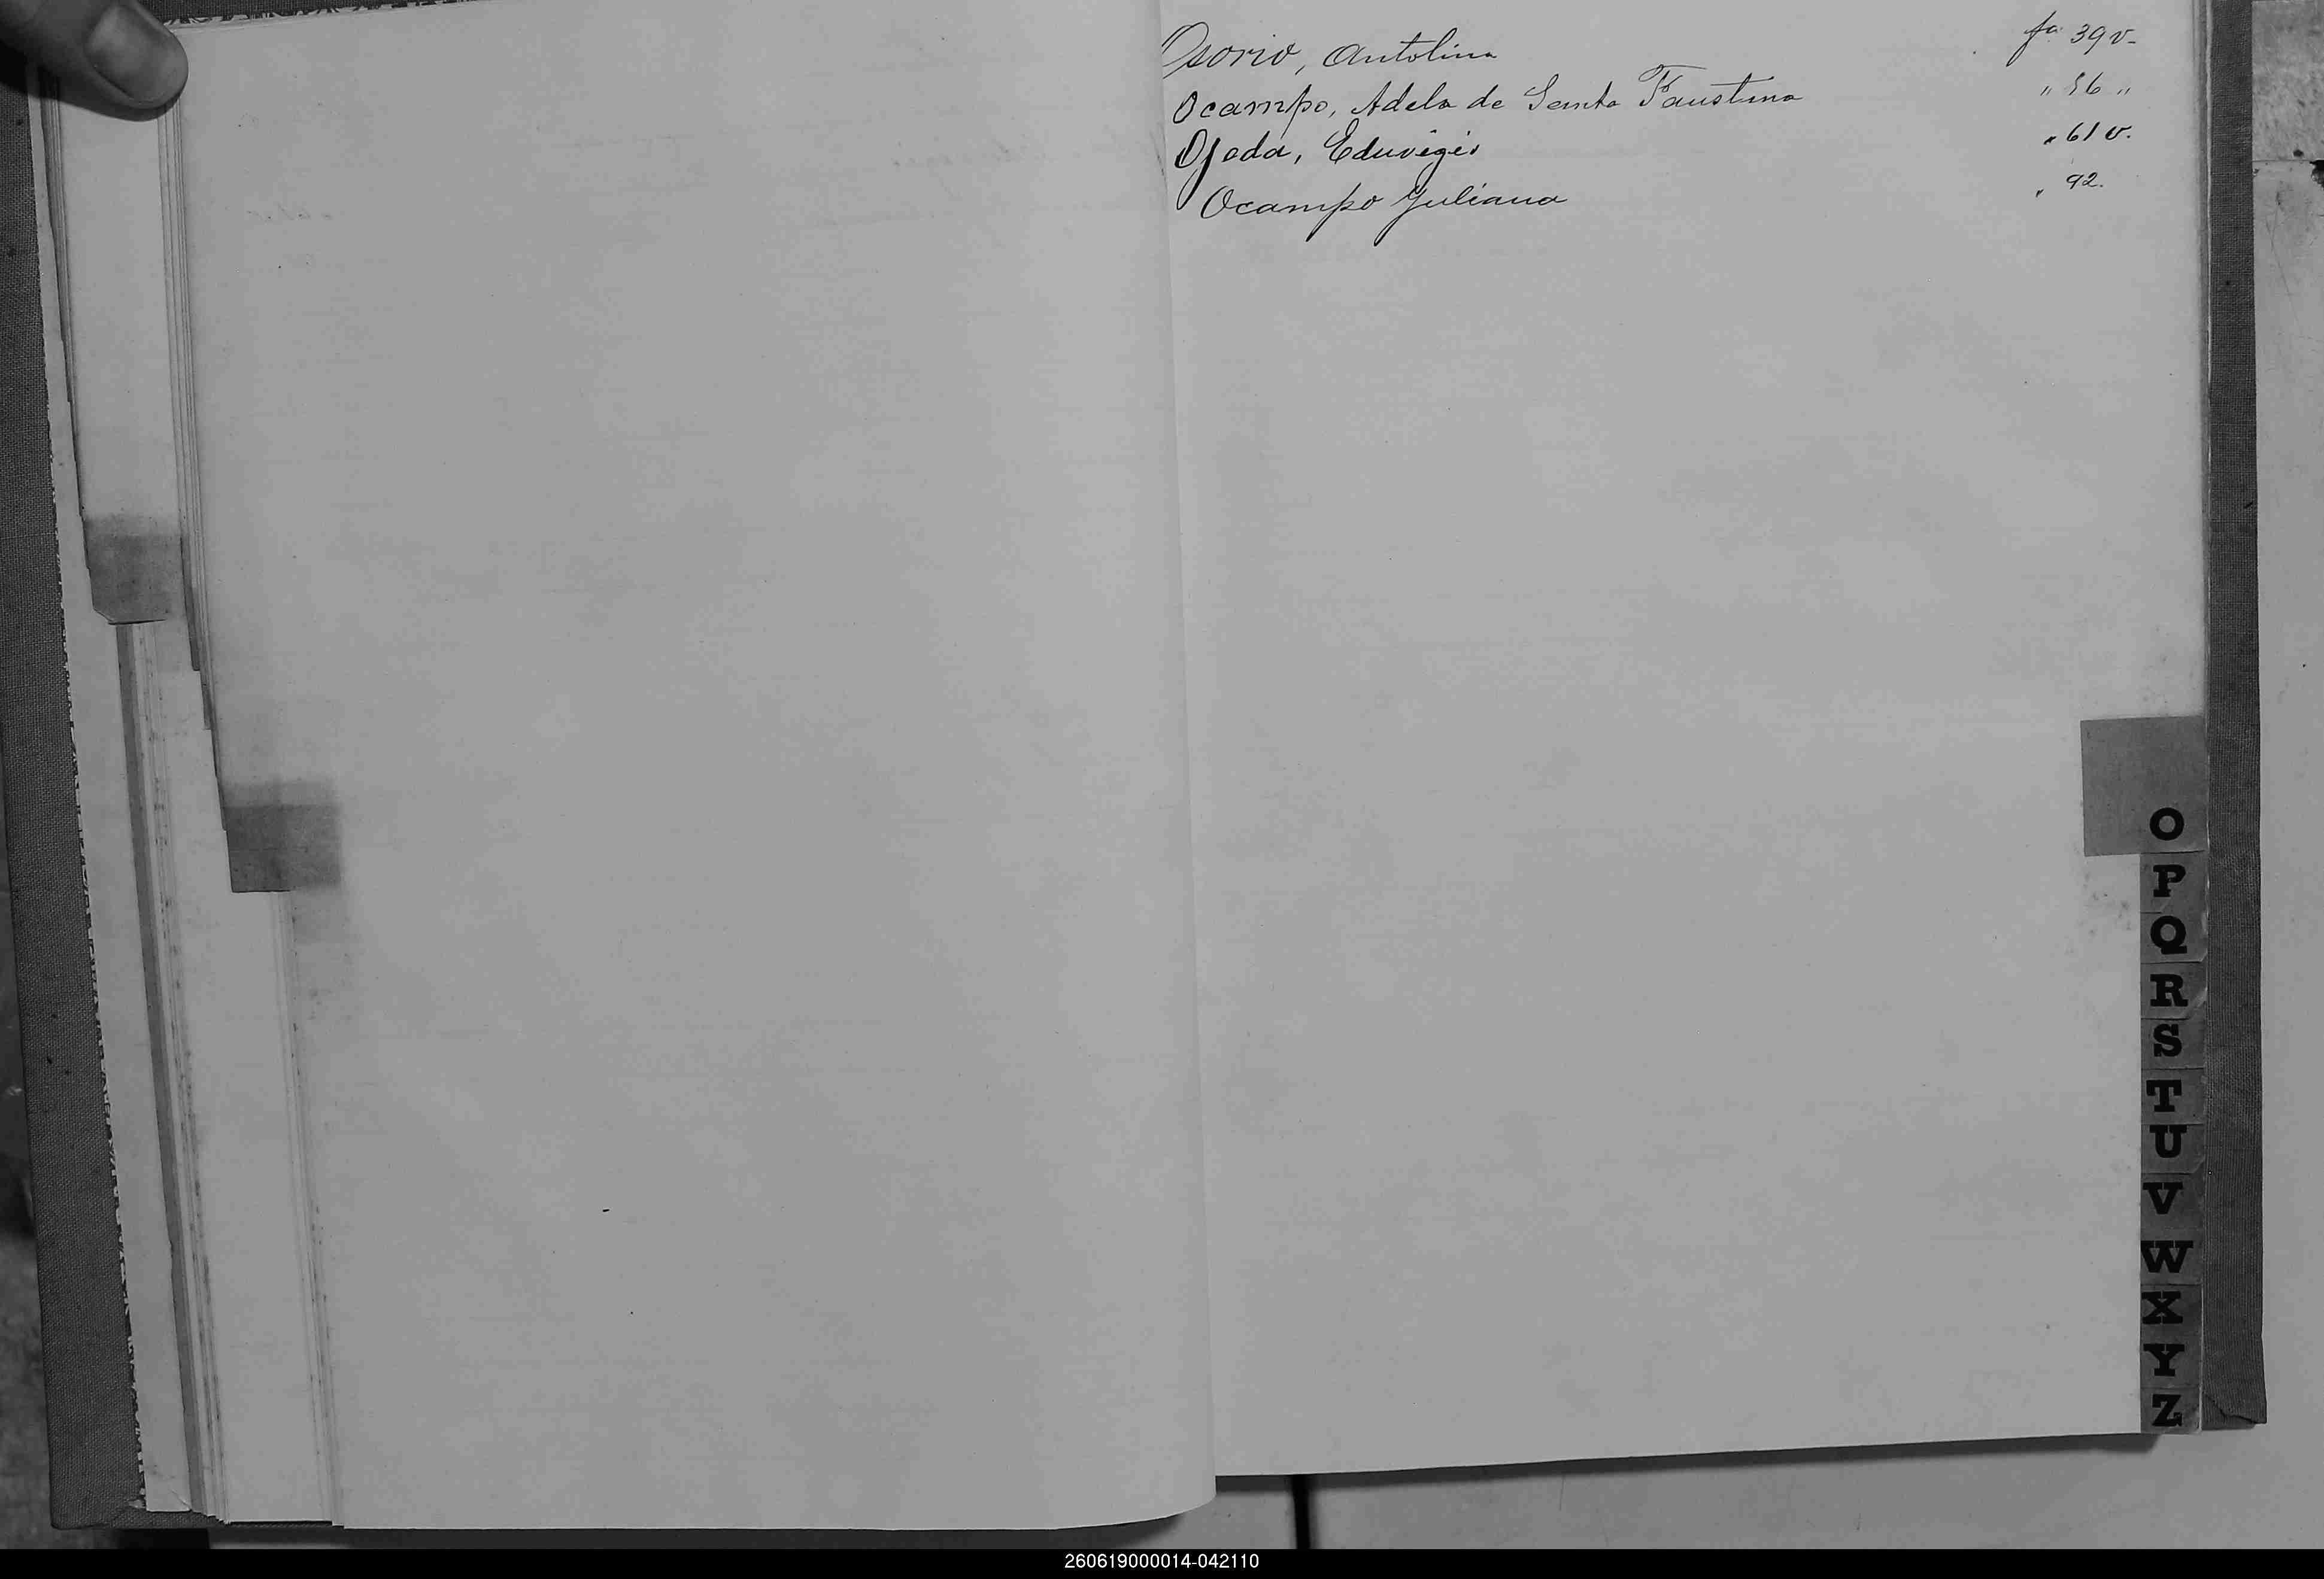 Osorio, Antolina fa 39 v-
Ocampo, Adela de Santa Faustina " 56 "
Ojeda, Eduvigis " 61 v.
Ocampo Juliana " 92.
O
P
Q
R
S
T
U
V
W
X
Y
Z
260619000014-042110